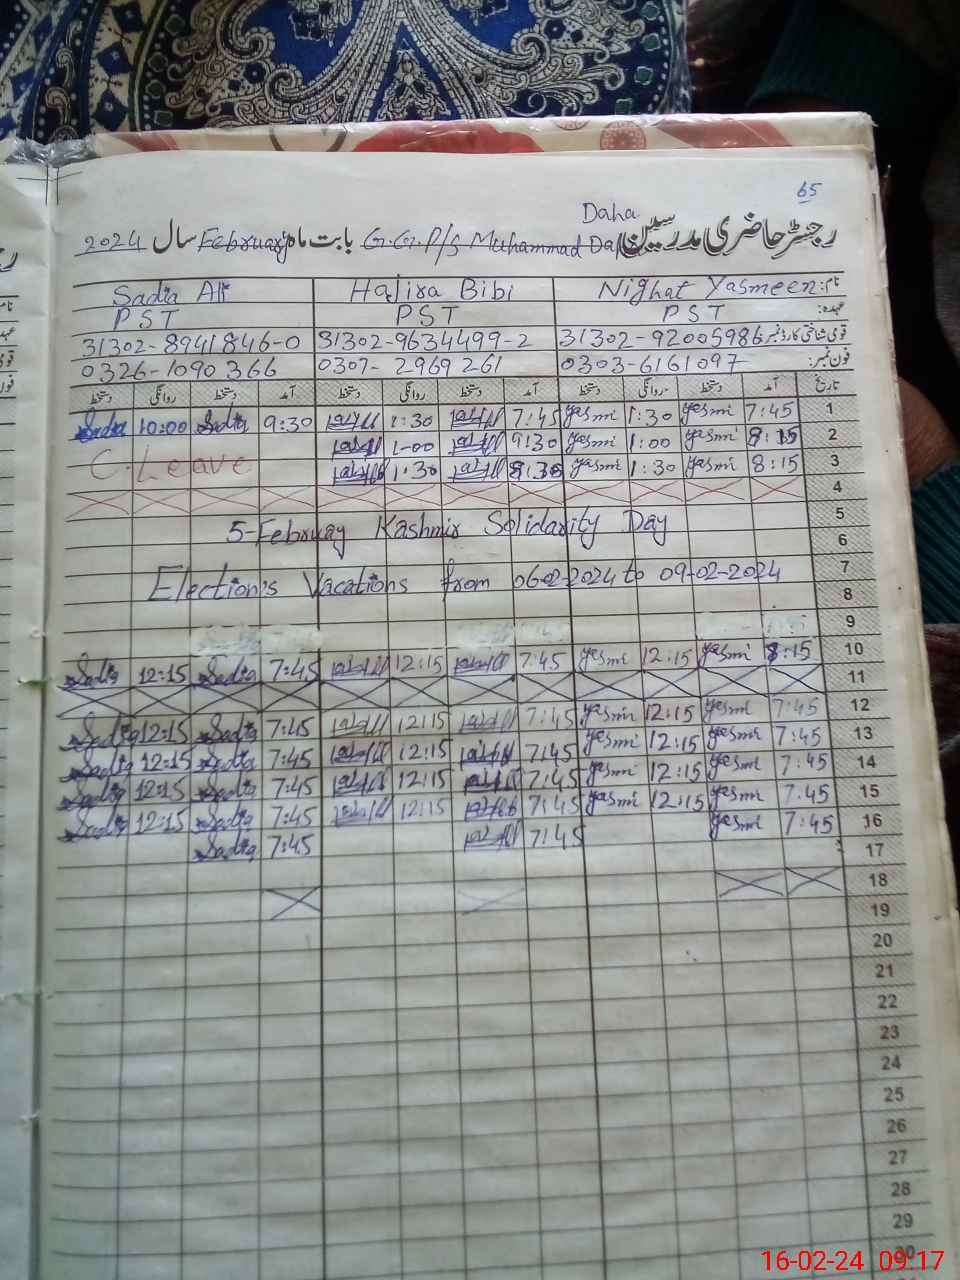 65
Daha
رجسٹر حاضری مدرسین G.G.P/S Muhammad Daha بابت ماہ February سال 2024
نام: Nighat Yasmeen Hajira Bibi Sadia Ali
عہدہ: PST PST PST
قومی شناختی کارڈ نمبر 31302-92005986 31302-9634499-2 31302-8941846-0
فون نمبر: 0303-6161097 0307-2969261 0326-1090366
تاریخ آمد دستخط روانگی دستخط آمد دستخط روانگی دستخط آمد دستخط روانگی دستخط
1 7:45 Yasmi 1:30 Yasmi 7:45 1:30 9:30 Sadia 10:00 Sadia
2 8:15 Yasmi 1:00 Yasmi 9:30 1:00
3 8:15 Yasmi 1:30 Yasmi 8:30 1:30 C.Leave
4
5 5-Februay Kashmir Solidarity Day
6
7 Election's Vacations from 06-02-2024 to 09-02-2024
8
9
10 8:15 Yasmi 12:15 Yasmi 7:45 12:15 7:45 Sadia 12:15 Sadia
11
12 7:45 Yasmi 12:15 Yasmi 7:45 12:15 7:45 Sadia 12:15 Sadia
13 7:45 Yasmi 12:15 Yasmi 7:45 12:15 7:45 Sadia 12:15 Sadia
14 7:45 Yasmi 12:15 Yasmi 7:45 12:15 7:45 Sadia 12:15 Sadia
15 7:45 Yasmi 12:15 Yasmi 7:45 12:15 7:45 Sadia 12:15 Sadia
16 7:45 Yasmi 7:45 7:45 Sadia
17
18
19
20
21
22
23
24
25
26
27
28
29
30
16-02-24 09:17